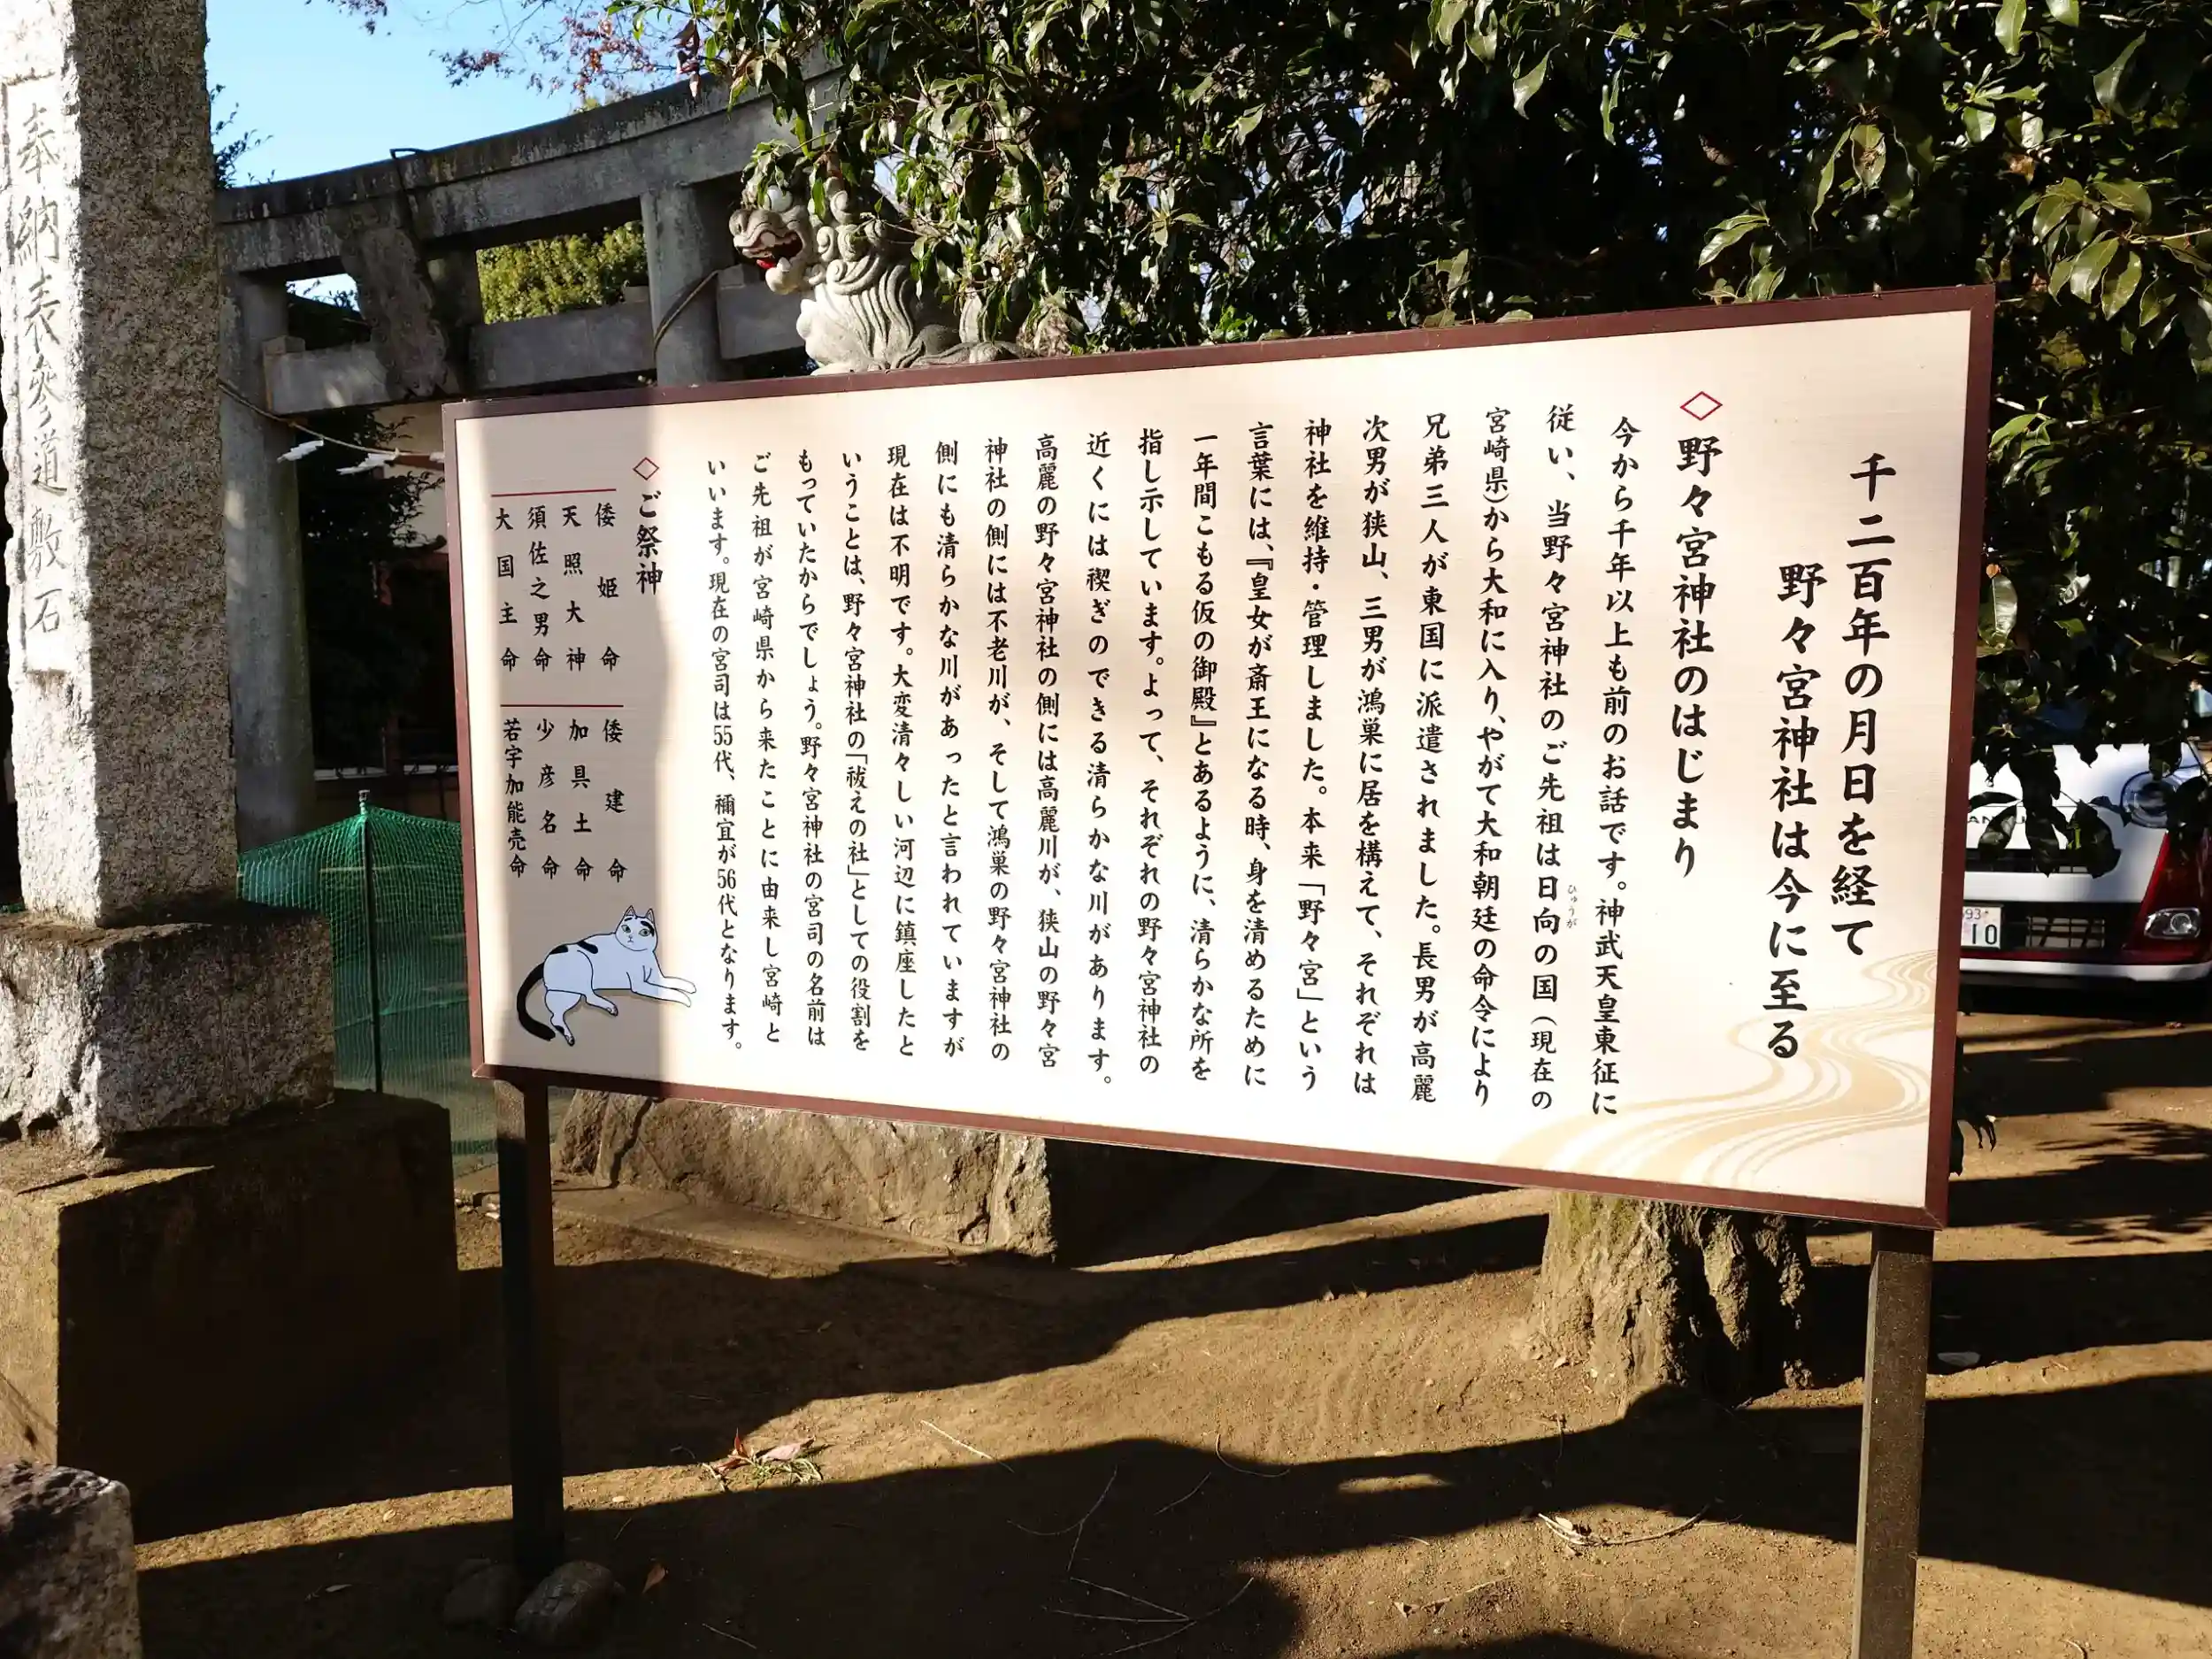 千二百年の月日を経て
野々宮神社は今に至る
◇野々宮神社のはじまり
今から千年以上も前のお話です。神武天皇東征に
従い、当野々宮神社のご先祖は日向の国(現在の
ひゅうが
宮崎県)から大和に入り、やがて大和朝廷の命令により
兄弟三人が東国に派遣されました。長男が高麗
次男が狭山、三男が鴻巣に居を構えて、それぞれは
神社を維持・管理しました。本来「野々宮」という
言葉には、『皇女が斎王になる時、身を清めるために
一年間こもる仮の御殿』とあるように、清らかな所を
指し示しています。よって、それぞれの野々宮神社の
近くには禊ぎのできる清らかな川があります。
高麗の野々宮神社の側には高麗川が、狭山の野々宮
神社の側には不老川が、そして鴻巣の野々宮神社の
側にも清らかな川があったと言われていますが
現在は不明です。大変清々しい河辺に鎮座したと
いうことは、野々宮神社の「祓えの社」としての役割を
もっていたからでしょう。野々宮神社の宮司の名前は
ご先祖が宮崎県から来たことに由来し宮崎と
いいます。現在の宮司は55代、禰宜が56代となります。
◇ご祭神
倭姫命
天照大神
須佐之男命
大国主命
倭建命
加具土命
少彦名命
若宇加能売命
奉納表参道敷石
10